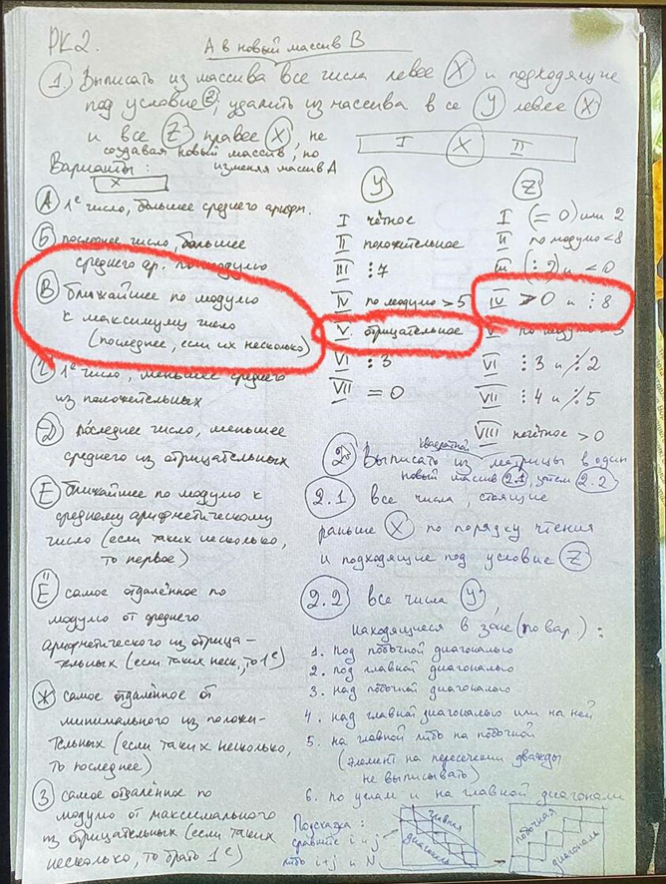 РК2.
А в новый массив В
1. Выписать из массива все числа левее X и подходящие
под условие Z, удалить из массива все Y левее X
и все Z правее X, не
создавая новый массив, но
изменяя массив А
I X II
Варианты:
X
А 1е число, большее среднего арифм.
Б последнее число, большее
среднего ар. по модулю
В ближайшее по модулю
к максимуму число
(последнее, если их несколько)
Г 1е число, меньшее среднего
из положительных
Д последнее число, меньшее
среднего из отрицательных
Е ближайшее по модулю к
среднему арифметическому
число (если таких несколько,
то первое)
Ё самое отдалённое по
модулю от среднего
арифметического из отрица-
тельных (если таких неск., то 1е)
Ж самое отдалённое от
минимального из положи-
тельных (если таких несколько,
то последнее)
З самое отдалённое по
модулю от максимального
из отрицательных (если таких
несколько, то брать 1е)
Y
I чётное
II положительное
III ⋮7
IV по модулю >5
V отрицательное
VI ⋮3
VII =0
Z
I (=0) или 2
II по модулю <8
III (⋮2) и <0
IV >0 и ⋮8
V по модулю
VI ⋮3 и ⋮̸2
VII ⋮4 и ⋮̸5
VIII нечётное >0
квадратной
2. Выписать из матрицы в один
новый массив 2.1, затем 2.2
2.1 все числа, стоящие
раньше X по порядку чтения
и подходящие под условие Z
2.2 все числа Y,
находящиеся в зоне (по вар.):
1. под побочной диагональю
2. под главной диагональю
3. над побочной диагональю
4. над главной диагональю или на ней
5. на главной либо на побочной
(элемент на пересечении дважды
не выписывать)
6. по углам и на главной диагонали
Подсказка:
сравните i и j
либо i+j и N
главная
диагональ
побочная
диагональ